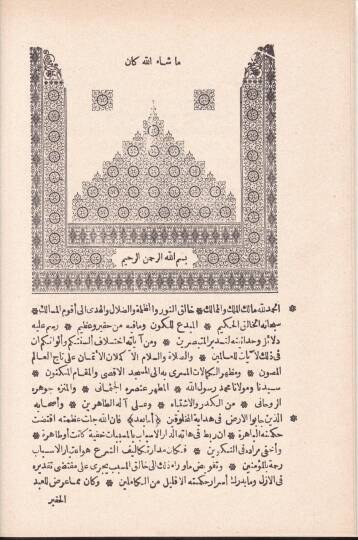 ما شاء الله كان
بسم الله الرحمن الرحيم
الحمد لله مالك الملك والممالك خالق النور والظلمة والضلال والهدى الى أقوم المسالك
سبحانه الخالق الحكيم المبدع للكون ومافيه من حقير وعظيم رسم عليه
دلائل وحدانيته لتدبر المتبصرين ومن آياته اختلاف ألسنتكم وألوانكم ان
فى ذلك لآيات للعالمين والصلاة والسلام الاكملان الاتمان على تاج العالم
المصون ومظهر الكمالات المسرى به الى المسجد الاقصى والمقام المكنون
سيدنا ومولانا محمد رسول الله المطهر عنصره الجثمانى والمنزه جوهره
الروحانى من الكدر والاشتباه وعلى آله الطاهرين وأصحابه
الذين جابوا الارض فى هداية المخلوقين (أما بعد) فان الله جلت عظمته اقتضت
حكمته الباهرة أن ربط فى هاته الدار الاسباب بالمسببات خفية كانت أوظاهرة
وأخفى مراده فى التكوين فكان مدار تكاليف الشرع هو اعتبار الاسباب
رحمة بالمؤمنين وتفويض ما وراء ذلك الى خالق المسبب يجرى على مقتضى تقديره
فى الازل وما يدرك أسرار حكمته الا قليل من الكاملين وكان مما عرض للعبد
الحقير